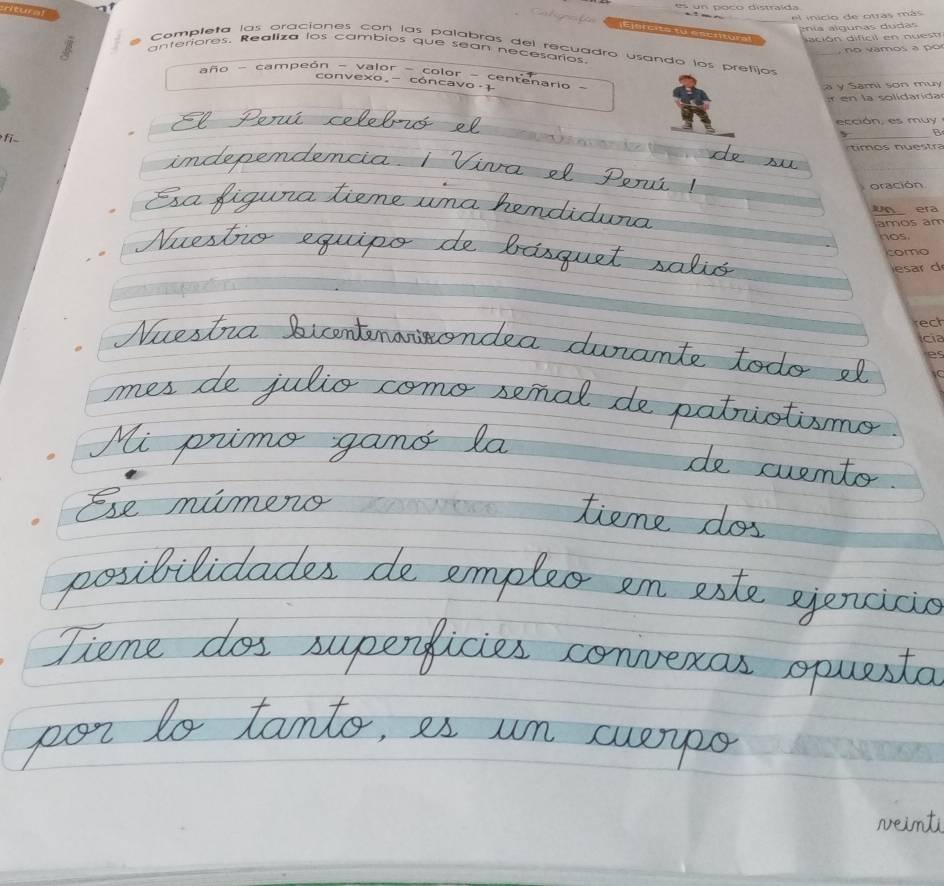 ¡Ejercita tu escritura!
Completa las oraciones con las palabras del recuadro usando los prefijos
anteriores. Realiza los cambios que sean necesarios.
año - campeón - valor - color - centenario -
convexo - cóncavo
El Perú celebró el
de su
independencia. ¡Viva el Perú!
Esa figura tiene una hendidura
Nuestro equipo de básquet salió
Nuestra bicentenario ondea durante todo el
mes de julio como señal de patriotismo.
Mi primo ganó la de cuento.
Ese número tiene dos
posibilidades de empleo en este ejercicio
Tiene dos superficies convexas opuesta
por lo tanto, es un cuerpo
veinti
es un poco distraída.
el inicio de otras más.
algunas dudas
difícil en nuestr
no vamos a po
a y Sami son muy
r en la solidarida
ección, es muy
nuestra
oración
en era
amos am
nos.
como
esar d